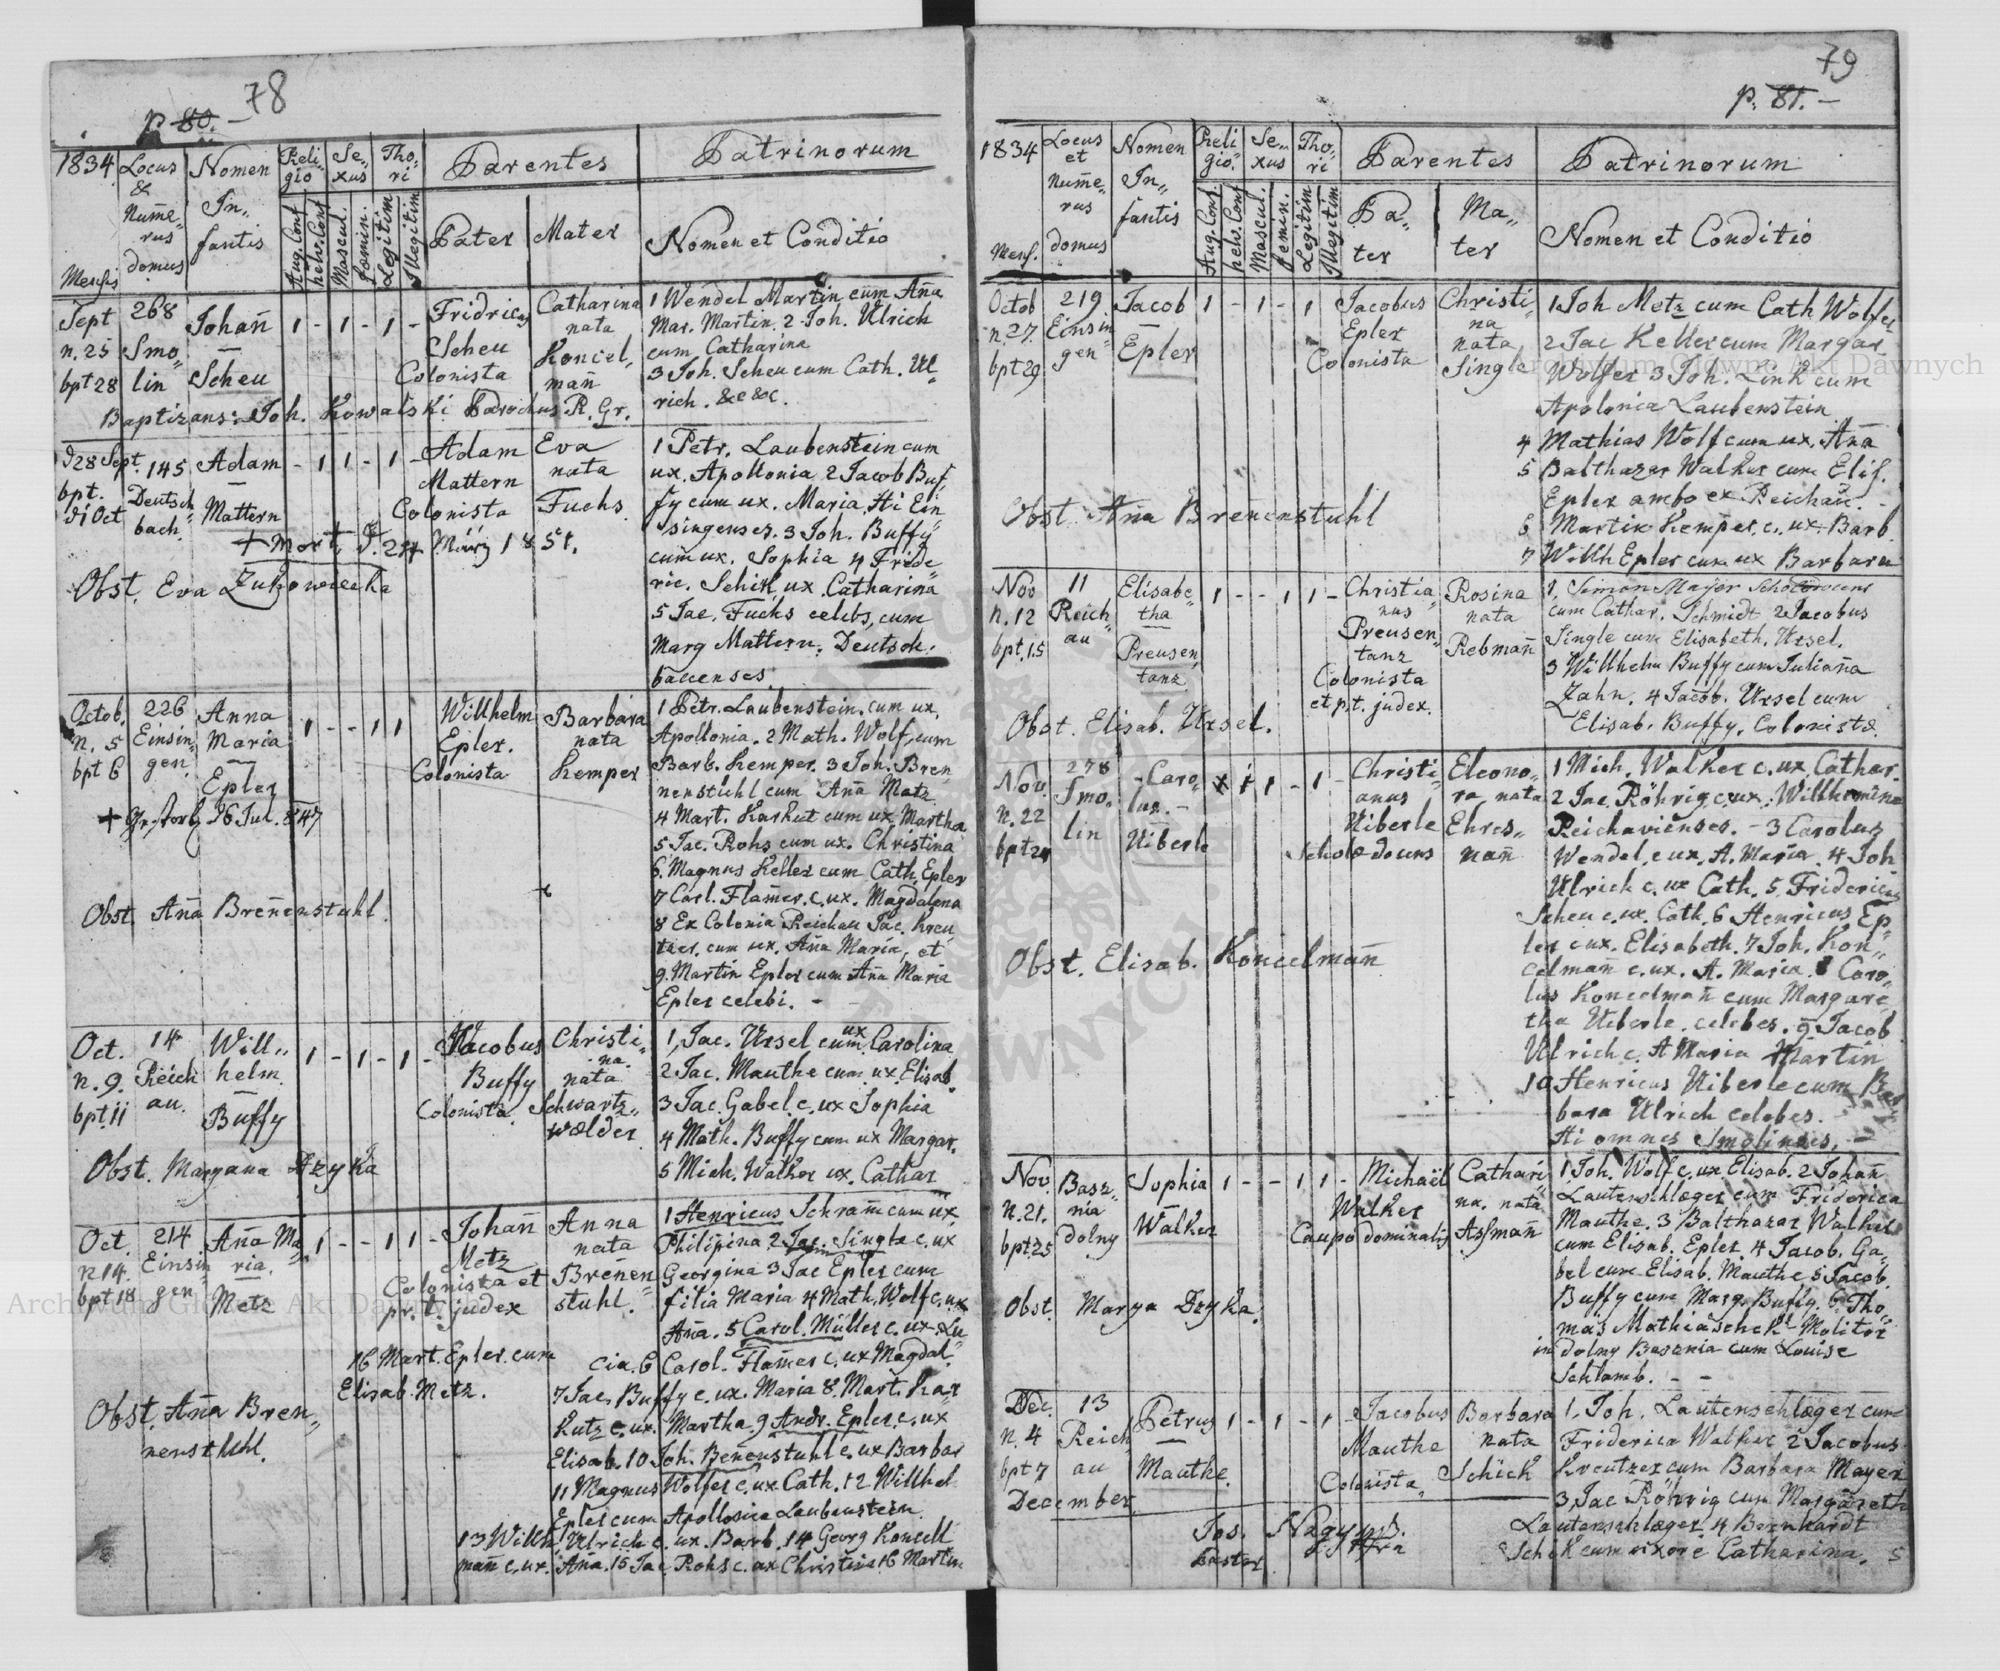 78
p. 80. -
1834
Locus & Nume-rus domus
Nomen In-fantis
Reli-gio
Se-xus
Tho-ri
Parentes
Patrinorum
Mensis
Aug. Conf
helv. Conf
Mascul.
foemin.
Legitim
Illegitim
Pater
Mater
Nomen et Conditio
Sept 268 Johañ 1 - 1 - 1 - Fridricus Catharina 1 Wendel Martin cum Aña
n. 25 Smo- Scheu nata Mar. Martin 2 Joh. Ulrich
bpt 28 lin Scheu Colonista Koncel- cum Catharina
mañ 3 Joh. Scheu cum Cath. Ul-
Baptizans: Joh. Kowalski Parochus R. Gr. rich. &c &c.
d 28 Sept. 145 Adam - 1 1 - 1 - Adam Eva 1 Petr. Laubenstein cum
bpt. Deutsch Mattern nata ux. Apollonia 2 Jacob Buf-
d 1 Oct bach. Mattern Colonista Fuchs fy cum ux. Maria, Hi Ein-
+ Mort. d. 24 März 1851. singenses. 3 Joh. Buffy
cum ux. Sophia 4 Fride-
Obst. Eva Zukowiecka ric. Schik ux Catharina
5 Jac. Fuchs celebs, cum
Marg Mattern. Deutsch-
bacenses
Octob. 226 Anna 1 - - 1 1 Willhelm Barbara 1 Petr. Laubenstein. cum ux.
n. 5 Einsin- Maria Epler. nata Apollonia. 2 Math. Wolf, cum
bpt 6 gen Epler Colonista Kemper Barb. Kemper. 3 Joh. Bren-
nenstuhl cum Aña Matz
+ 26 Jul. 847 4 Mart. Karhut cum ux Martha
5 Jac. Rohs cum ux. Christina
6 Magnus Keller cum Cath. Epler
7 Carl. Flamer. c. ux. Magdalena
Obst. Aña Breñenstuhl. 8 Ex Colonia Reichau Jac. Kreu-
tzer. cum ux. Aña Maria, et
9. Martin Epler cum Aña Maria
Epler celebi. -
Oct. 14 Will- 1 - 1 - 1 - Jacobus Christi- 1, Jac. Ursel cum ux Carolina
n. 9. Reich helm. Buffy na nata 2 Jac. Mauthe cum ux. Elisab.
bpt. 11 au. Buffy Colonista Schwartz- 3 Jac. Gabel c. ux Sophia
wælder 4 Math. Buffy cum ux Margar.
Obst. Maryana Dzyka 5 Mich. Walker ux. Cathar
Oct. 214 Aña Ma- 1 - - 1 1 - Johañ Anna 1 Henricus Schram cum ux
n 14. Einsin- ria. Metz nata Philipina 2 Jac. Single c. ux
bpt 18 gen Metz Colonista et Breñen- Georgina 3 Jac Epler cum
pr. t. judex stuhl. filia Maria 4 Math. Wolf c. ux
Aña. 5 Carol. Müller c. ux. Lu-
16 Mart. Epler. cum cia. 6 Carol. Flamer c. ux Magdal.
Elisab. Metz. 7 Jac. Buffy c. ux. Maria 8. Mart. Kar-
Obst. Aña Bren- Kutz c. ux. Martha. 9 Andr. Epler. c. ux
nenstuhl. Elisab. 10 Joh. Beñenstuhl c. ux Barbar
11 Magnus Wolfer c. ux. Cath. 12 Willhel
Epler cum Apollonia Laubenstein.
13 Willh. Ulrich c. ux. Barb. 14 Georg Koncell
mañ c. ux. Aña. 15 Jac Rohs c. ux Christina 16 Martin
79
p. 81. -
1834
Locus et Nume-rus domus
Nomen In-fantis
Reli-gio.
Se-xus
Tho-ri
Parentes
Patrinorum
Mens.
Aug. Conf.
helv. Conf
Mascul.
femin.
Legitim
Illegitim
Pa-ter
Ma-ter
Nomen et Conditio
Octob 219 Jacob 1 - 1 - 1 Jacobus Christi- 1 Joh Metz cum Cath Wolfer
n. 27. Einsin- Epler Epler na nata 2 Jac Keller cum Margar
bpt 29 gen Colonista Single Wolfer 3 Joh. Link cum
Apolonia Laubenstein
4 Mathias Wolf cum ux. Aña
5 Balthazar Walker cum Elis.
Obst. Aña Brenenstuhl Epler ambo ex Reichau. -
6 Martin Kemper. c. ux. Barb.
7 Willh Epler cum ux Barbara
Nov 11 Elisabe- 1 - - 1 1 - Christia- Rosina 1, Simon Mayer Scholæ docens
n. 12 Reich- tha nus nata cum Cathar. Schmidt 2 Jacobus
bpt. 15 au Preusen- Preusen- Rebmañ Single cum Elisabeth. Ursel.
tanz tanz 3 Willhelm Buffy cum Juliaña
Colonista Zahn. 4 Jacob. Ursel cum
et p. t. judex. Elisab. Buffy. Colonistæ
Obst. Elisab. Ursel.
Nov. 278 Caro- x 1 1 - 1 - Christi- Eleono- 1 Mich. Walker c. ux. Cathar.
n. 22 Smo- lus. - anus ra nata 2 Jac. Röhrig c ux. Willhemina
bpt 24 lin Uiberle Uiberle Ehres- Reichavienses. - 3 Carolus
Scholæ docens mañ Wendel. c ux. A. Maria. 4 Joh
Ulrich c. ux Cath. 5. Fridericus
Scheu c. ux. Cath. 6 Henricus Ep-
Obst. Elisab. Koncelmañ ler c ux. Elisabeth. 7 Joh. Kon-
celmañ c. ux. A. Maria. 8 Caro-
lus Koncelmañ cum Margare-
tha Uiberle. celebes. 9 Jacob
Ulrich c. A Maria Martin
10 Henricus Uiberle cum Bar-
bara Ulrich celebes.
Hi omnes Smolinses. -
Nov. Basz- Sophia 1 - - 1 1 - Michaël Cathari- 1 Joh. Wolf c. ux Elisab. 2 Johañ
n. 21. nia Walker Walker na. nata Lautenschlæger cum Friderica
bpt 25 dolny Caupo dominalis Assmañ Mauthe. 3 Balthazar Walker
cum Elisab. Epler. 4 Jacob. Ga-
bel cum Elisab. Mauthe 5 Jacob.
Obst. Marya Dzyka. Buffy cum Marg. Buffy. 6. Tho-
mas Mathiaschek Molitor
in Dolny Basznia cum Louise
Schlamb. - -
Dec. 13 Petrus 1 - 1 - 1 - Jacobus Barbara 1. Joh. Lautenschlæger cum
n. 4 Reich Mauthe nata Friderica Walker 2 Jacobus
bpt 7 au Mauthe. Colonista. Schick Kreutzer cum Barbara Mayer
December 3 Jac Röhrig cum Margareth
Jos. Nagy Lautenschlæger. 4 Bernhardt
Pastor Schik cum uxore Catharina. 5
Archiwum Główne Akt Dawnych